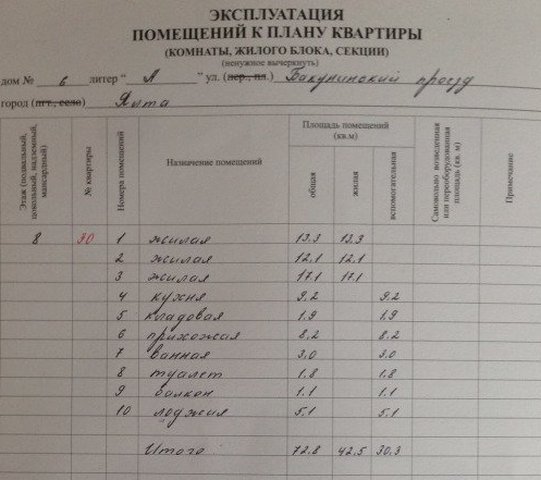 ЭКСПЛУАТАЦИЯ
ПОМЕЩЕНИЙ К ПЛАНУ КВАРТИРЫ
(КОМНАТЫ, ЖИЛОГО БЛОКА, СЕКЦИИ)
(ненужное вычеркнуть)
дом № 6 литер “ А ” ул. (пер., пл.) Бакунинский проезд
город (пгт., село) Ялта
Этаж (подвальный, цокольный, надземный, мансардный) № квартиры Номера помещений Назначение помещений Площадь помещений (кв.м) общая жилая вспомогательная Самовольно возведенная или переоборудованная площадь (кв. м) Примечание
8 70 1 жилая 13,3 13,3
2 жилая 12,1 12,1
3 жилая 17,1 17,1
4 кухня 9,2 9,2
5 кладовая 1,9 1,9
6 прихожая 8,2 8,2
7 ванная 3,0 3,0
8 туалет 1,8 1,8
9 балкон 1,1 1,1
10 лоджия 5,1 5,1
Итого 72,8 42,5 30,3